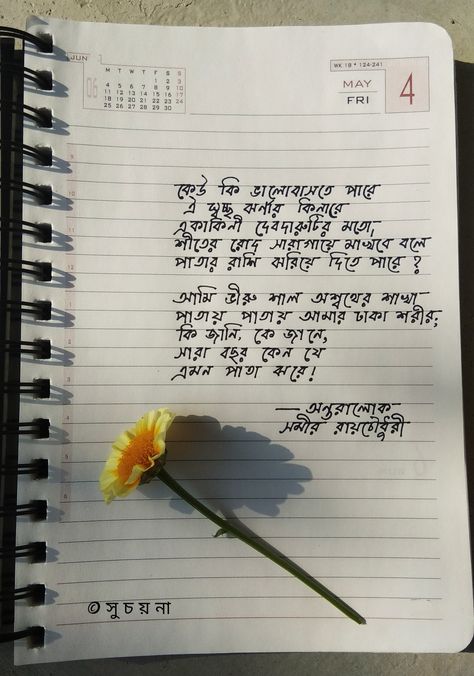 JUN
06
M T W T F S S
1 2 3
4 5 6 7 8 9 10
11 12 13 14 15 16 17
18 19 20 21 22 23 24
25 26 27 28 29 30
WK 18 • 124-241
MAY
FRI
4
কেউ কি ভালোবাসতে পারে
ঐ স্বচ্ছ ঝর্নার কিনারে
একাকিনী দেবদারুটির মতো,
শীতের রোদ সারাগায়ে মাখবে বলে
পাতার রাশি ঝরিয়ে দিতে পারে ?
আমি ভীরু শাল অশ্বথের শাখা
পাতায় পাতায় আমার ঢাকা শরীর,
কি জানি, কে জানে,
সারা বছর কেন যে
এমন পাতা ঝরে!
— অন্তরালোক
সমীর রায়চৌধুরী
© সুচয়না